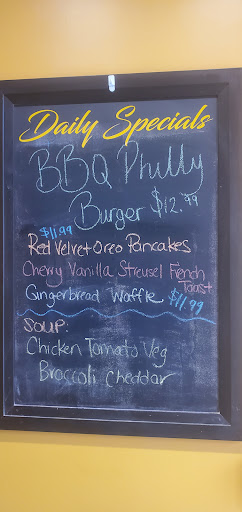 Daily Specials
BBQ Philly
Burger $12.99
$11.99
Red Velvet Oreo Pancakes
Cherry Vanilla Streusel French
Toast
Gingerbread Waffle $11.99
SOUP:
Chicken Tomato Veg
Broccoli Cheddar